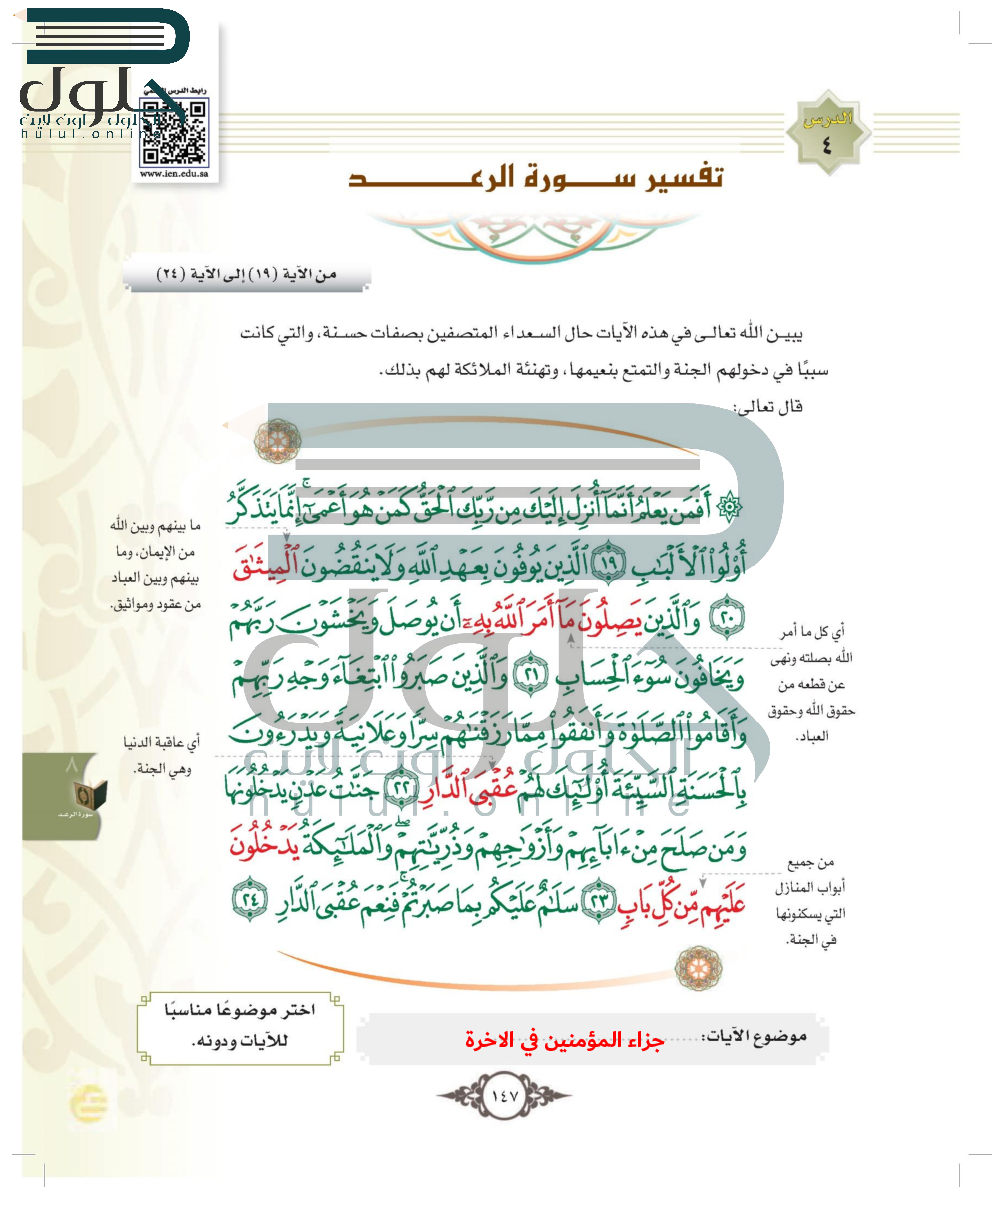 حلول
الحلول اون لاين
hulul.online
رابط الدرس الرقمي
www.ien.edu.sa
الدرس
٤
تفسير ســورة الرعــــد
من الآية (١٩) إلى الآية (٢٤)
يبيـن الله تعالـى في هذه الآيات حال السـعداء المتصفين بصفات حسـنة، والتي كانت
سببًا في دخولهم الجنة والتمتع بنعيمها، وتهنئة الملائكة لهم بذلك.
قال تعالى:
۞ أَفَمَن يَعْلَمُ أَنَّمَآ أُنزِلَ إِلَيْكَ مِن رَّبِّكَ ٱلْحَقُّ كَمَنْ هُوَ أَعْمَىٰٓ ۚ إِنَّمَا يَتَذَكَّرُ
أُو۟لُوا۟ ٱلْأَلْبَٰبِ ١٩ ٱلَّذِينَ يُوفُونَ بِعَهْدِ ٱللَّهِ وَلَا يَنقُضُونَ ٱلْمِيثَٰقَ
٢٠ وَٱلَّذِينَ يَصِلُونَ مَآ أَمَرَ ٱللَّهُ بِهِۦٓ أَن يُوصَلَ وَيَخْشَوْنَ رَبَّهُمْ
وَيَخَافُونَ سُوٓءَ ٱلْحِسَابِ ٢١ وَٱلَّذِينَ صَبَرُوا۟ ٱبْتِغَآءَ وَجْهِ رَبِّهِمْ
وَأَقَامُوا۟ ٱلصَّلَوٰةَ وَأَنفَقُوا۟ مِمَّا رَزَقْنَٰهُمْ سِرًّا وَعَلَانِيَةً وَيَدْرَءُونَ
بِٱلْحَسَنَةِ ٱلسَّيِّئَةَ أُو۟لَٰٓئِكَ لَهُمْ عُقْبَى ٱلدَّارِ ٢٢ جَنَّٰتُ عَدْنٍ يَدْخُلُونَهَا
وَمَن صَلَحَ مِنْ ءَابَآئِهِمْ وَأَزْوَٰجِهِمْ وَذُرِّيَّٰتِهِمْ ۖ وَٱلْمَلَٰٓئِكَةُ يَدْخُلُونَ
عَلَيْهِم مِّن كُلِّ بَابٍ ٢٣ سَلَٰمٌ عَلَيْكُم بِمَا صَبَرْتُمْ ۚ فَنِعْمَ عُقْبَى ٱلدَّارِ ٢٤
ما بينهم وبين الله
من الإيمان، وما
بينهم وبين العباد
من عقود ومواثيق.
أي كل ما أمر
الله بصلته ونهى
عن قطعه من
حقوق الله وحقوق
العباد.
أي عاقبة الدنيا
وهي الجنة.
من جميع
أبواب المنازل
التي يسكنونها
في الجنة.
٨
سورة الرعد
الحلول اون لاين
hulul.online
اختر موضوعًا مناسبًا
للآيات ودونه.
موضوع الآيات: جزاء المؤمنين في الاخرة
١٤٧